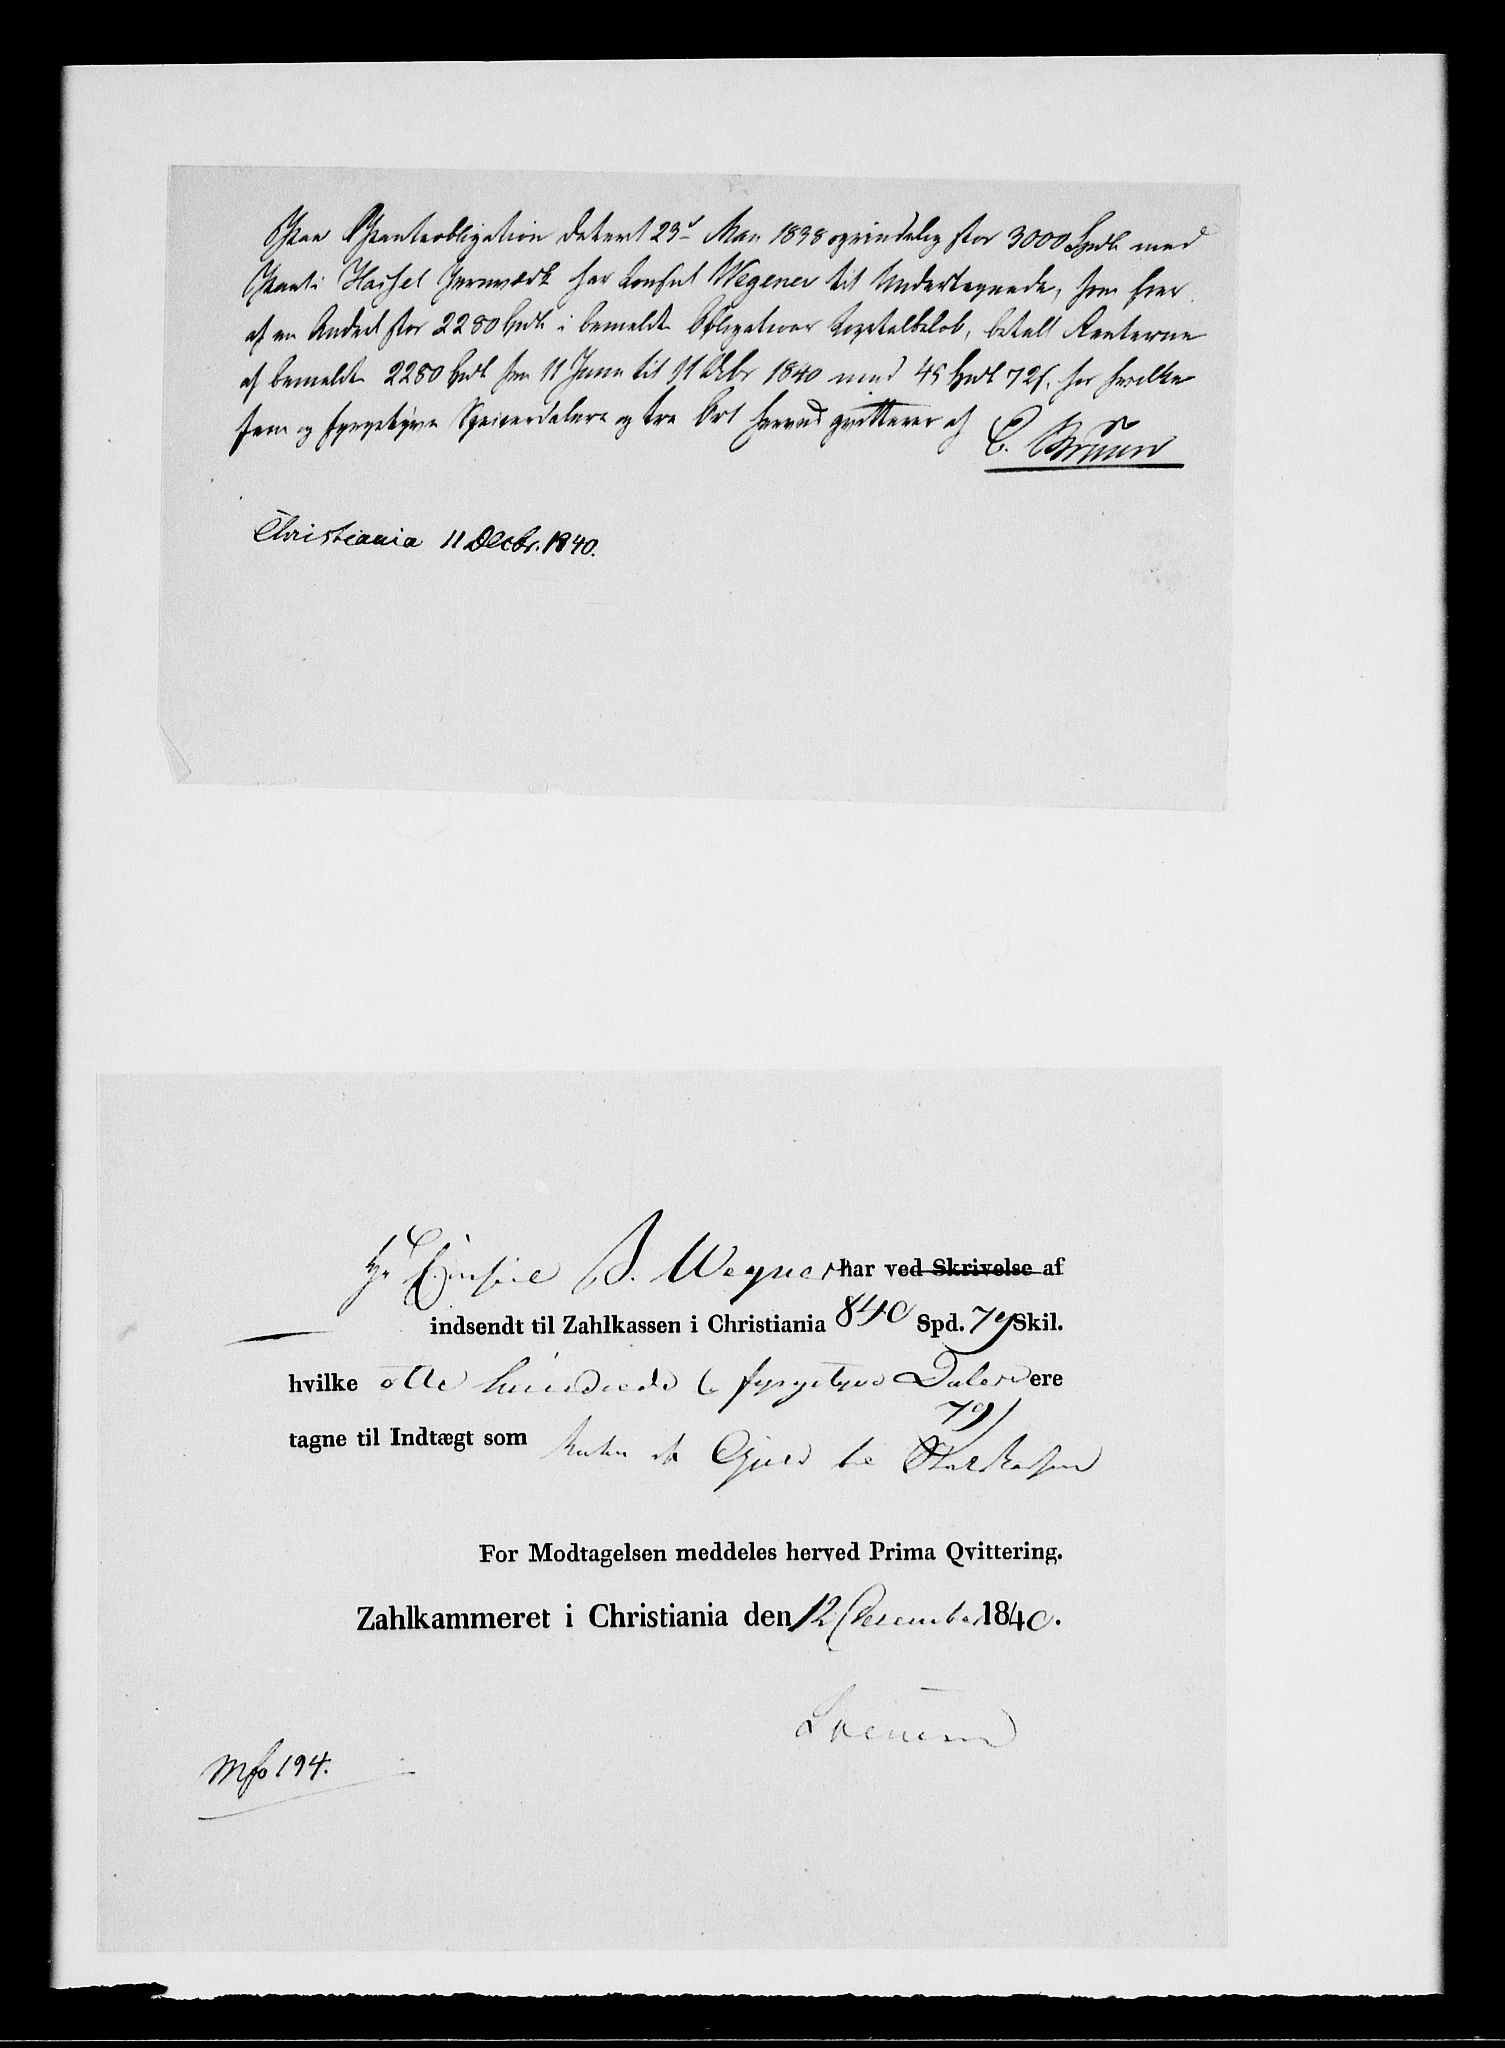 Paa Panteobligation dateret 23d Mai 1838 oprindelig stor 3000 Spdl med
Pant i Hassel Jernværk har Consul Wegener til Undertegnede, som Eier
af en Andeel stor 2280 Spdl i bemeldte Obligations Capitalbeløb, betalt Renterne
af bemeldte 2280 Spdl fra 11 Juni til 11 Decbr 1840 med 45 Spdl 72 s, for hvilke
fem og fyrgetyve Speciesdalere og tre Ort herved qvitteres af C. Bruun
Christiania 11 Decbr. 1840.
Hr Consul B. Wegner har ved Skrivelse af
indsendt til Zahlkassen i Christiania 840 Spd. 79 Skil.
hvilke otte hundrede & fyrgetyve Daler ere
79
tagne til Indtægt som
For Modtagelsen meddeles herved Prima Qvittering.
Zahlkammeret i Christiania den 12 December 1840.
Mfo 194.